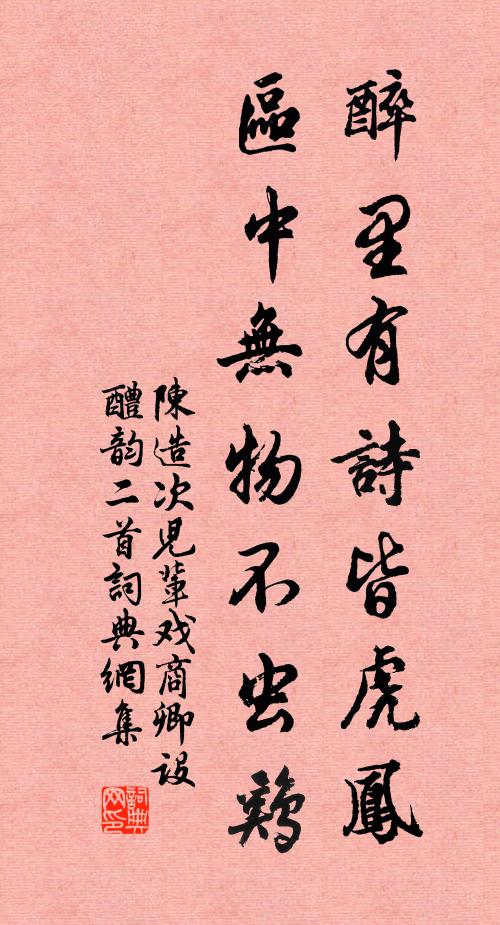 醉里有詩皆虎鳳
區中無物不虫鷄
陳造次兒輩戏商卿设
醴韵二首詞典網集
詞典网印